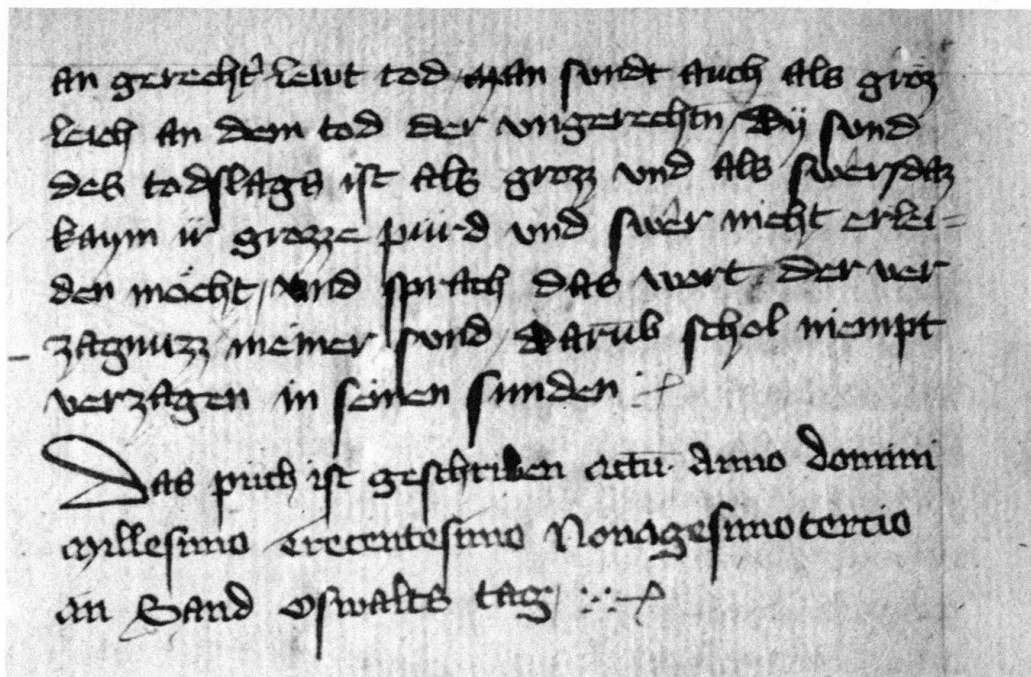 an gerecht' lewt tod man sundt auch als groz
leich an dem tod der vngerechtn / Dy sund
des todslags ist als grozz vnd als swer / daz
kaym ir grozze purd vnd swer nicht erlei=
den mocht / vnd sprach das wort der ver
zagnuzz meiner sund / Darūb schol niempt
verzagen in seinen sunden
Das puch ist geschriben actū Anno Domini
Millesimo Trecentesimo Nonagesimotercio
an Sand Oswalts tag